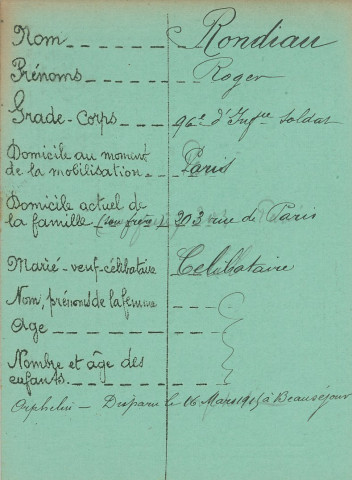 Nom - - - - - Rondiau
Prénoms - - - - - Roger
Grade-Corps - - - 96e d'Infrie soldat
Domicile au moment
de la mobilisation - - Paris
Domicile actuel de
la famille (son frère) 203 rue de Paris
Marié-veuf-célibataire Celibataire
Nom, prénoms de la femme
Age - - - - - - -
Nombre et âge des
enfants - - - - -
Orphelin - Disparu le 16 Mars 1915 à Beauséjour